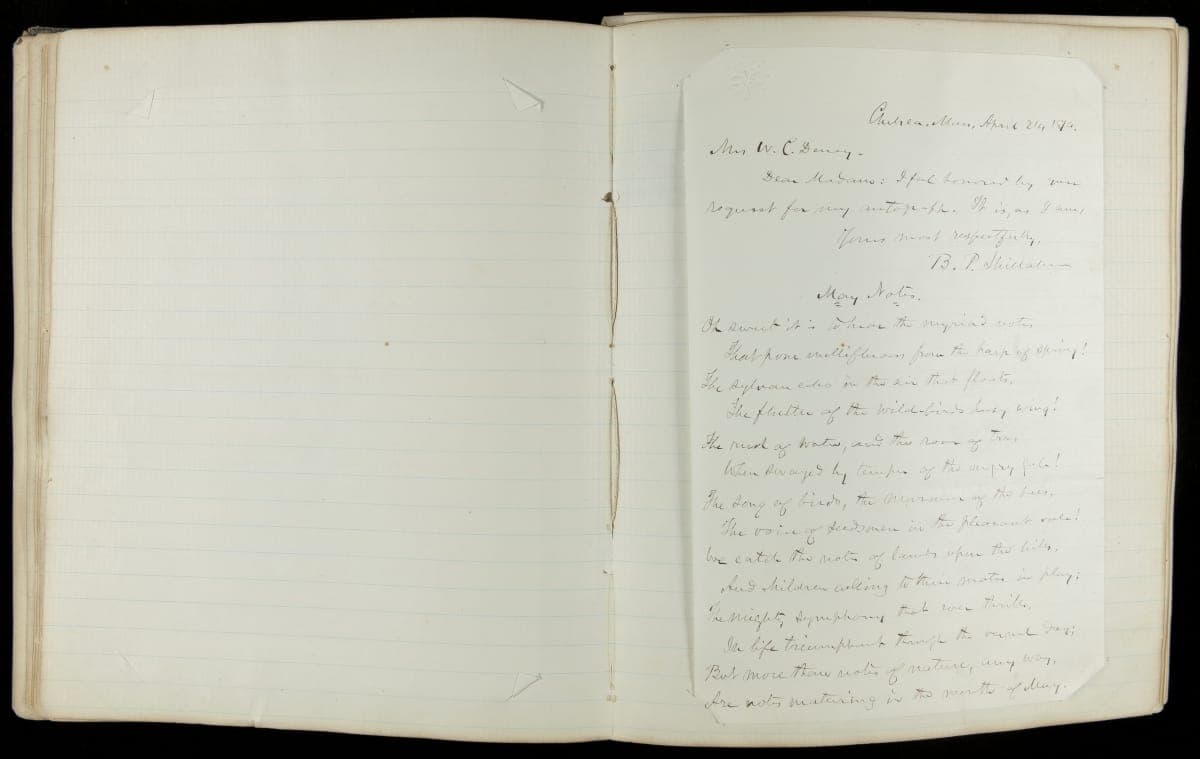 Chelsea, Mass, April 24, 187
Mrs W. C.
Dear Madam: I feel honored by your
request for my autograph. It is, as I am,
Yours most respectfully,
B. P. Shillaber
May Notes.
Oh sweet it is to hear the myriad notes
That pour mellifluous from the harp of spring!
The sylvan echo in the air that floats,
The flutter of the wild-birds busy wing!
The rush of water, and the roar of trees
When swayed by temper of the angry gale!
The song of birds, the murmur of the bees,
The voice of seedsmen in the pleasant vale!
We catch the note of lambs upon the hills,
And children calling to their mates in play;
The mighty symphony that ever thrills
In life triumphant through the vernal day;
But more than notes of nature, any way,
Are notes maturing in the month of May.